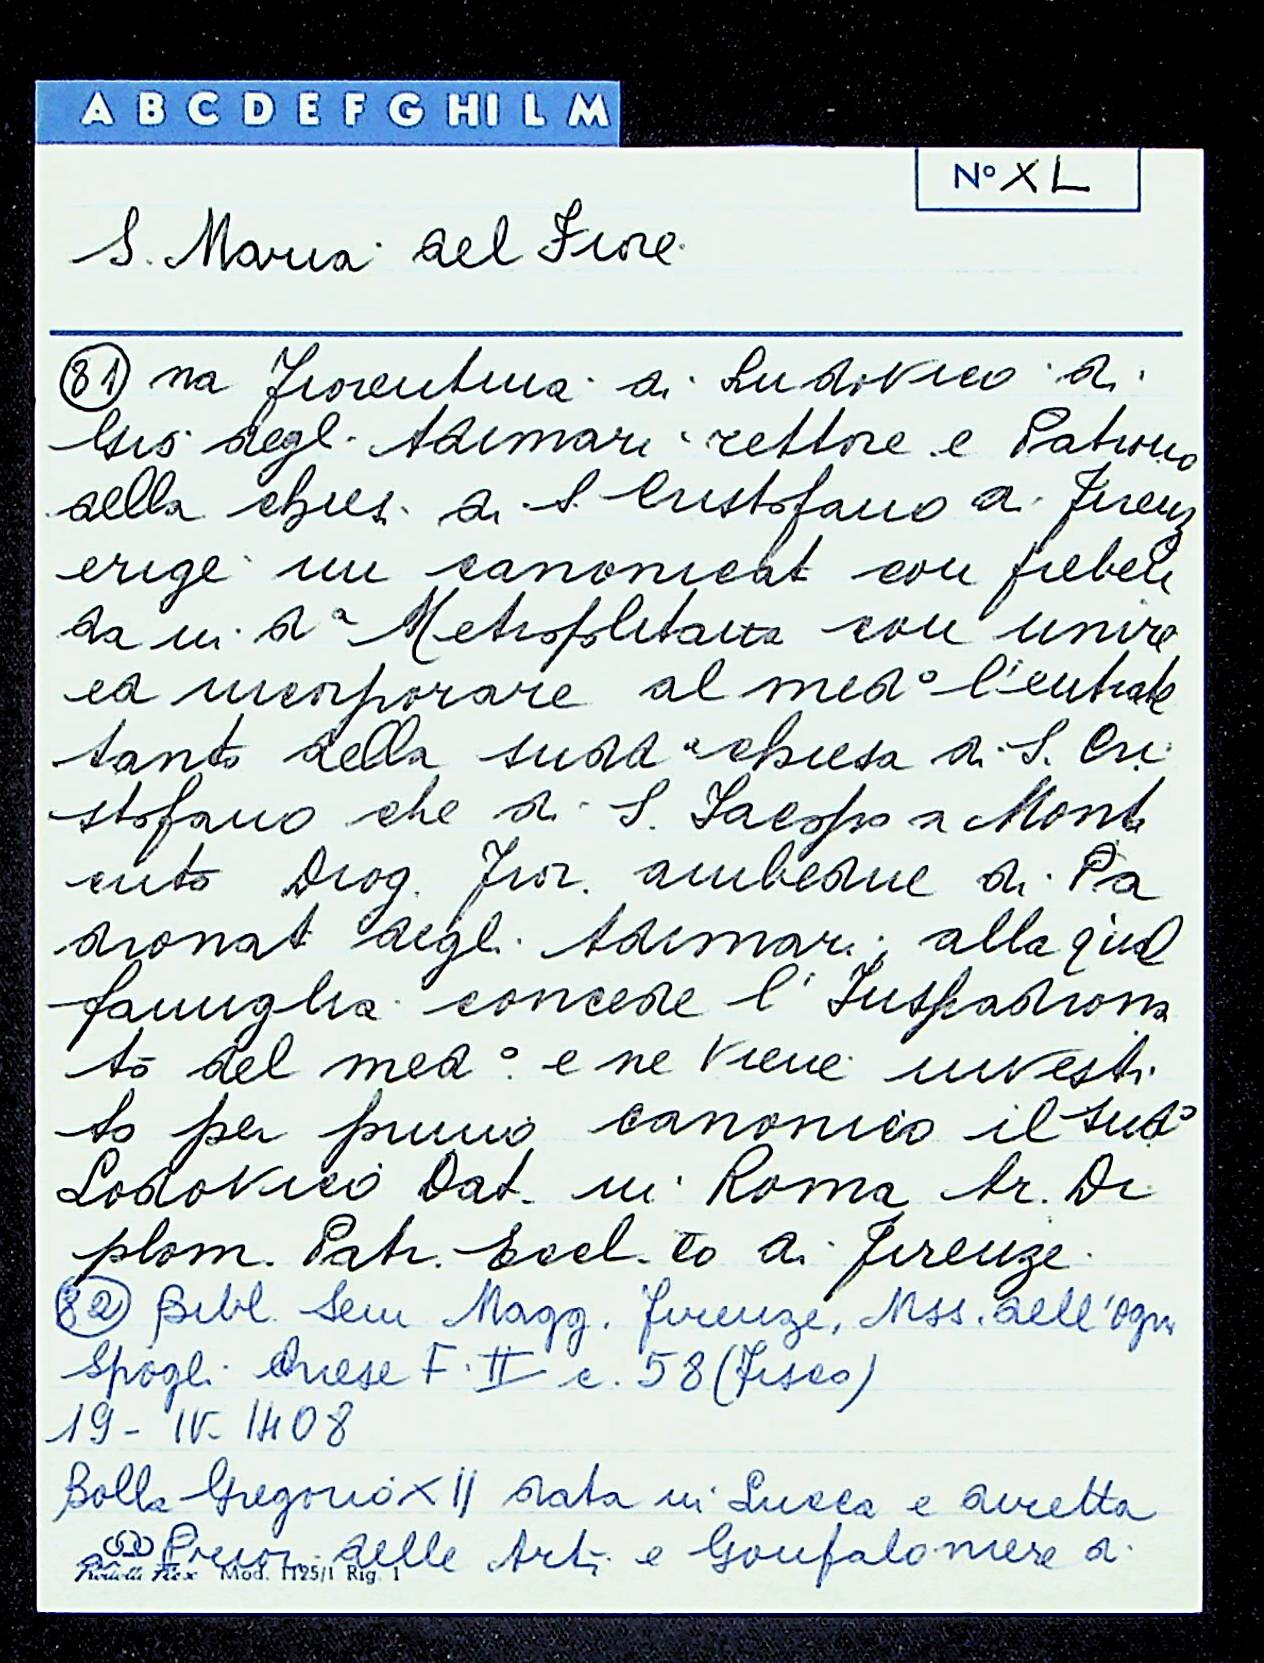 A B C D E F G H I L M
Nº XL
S. Maria del Fiore
81) na Fiorentina di Ludovico di
Gio degl. Adimari rettore e Patrono
della chies. di S. Cristofano a Firenz
erige un canonicat con preben
da in da Metropolitana con unire
ed incorporare al medº l'entrate
tanto della suddª chiesa di S. Cri
stofano che di S. Jacopo a Mont
Diog. Fior. ambedue di Pa
dronat degli Adimari, alla qual
famiglia concede l'Juspadrona
to del medº e ne viene investi
to per primo canonico il sudº
Lodovico Dat. in Roma Ar. Di
plom. Patr. Eccl. co di Firenze
82) Bibl. Sem Magg. Firenze, Mss. dell'Ogn
Spogli Chiese F. II c. 58 (Fisco)
19 - IV - 1408
Bolla Gregorio XII data in Lucca e diretta
Priori delle Arti e Gonfaloniere di
Mod. 1125/1 Rig. 1